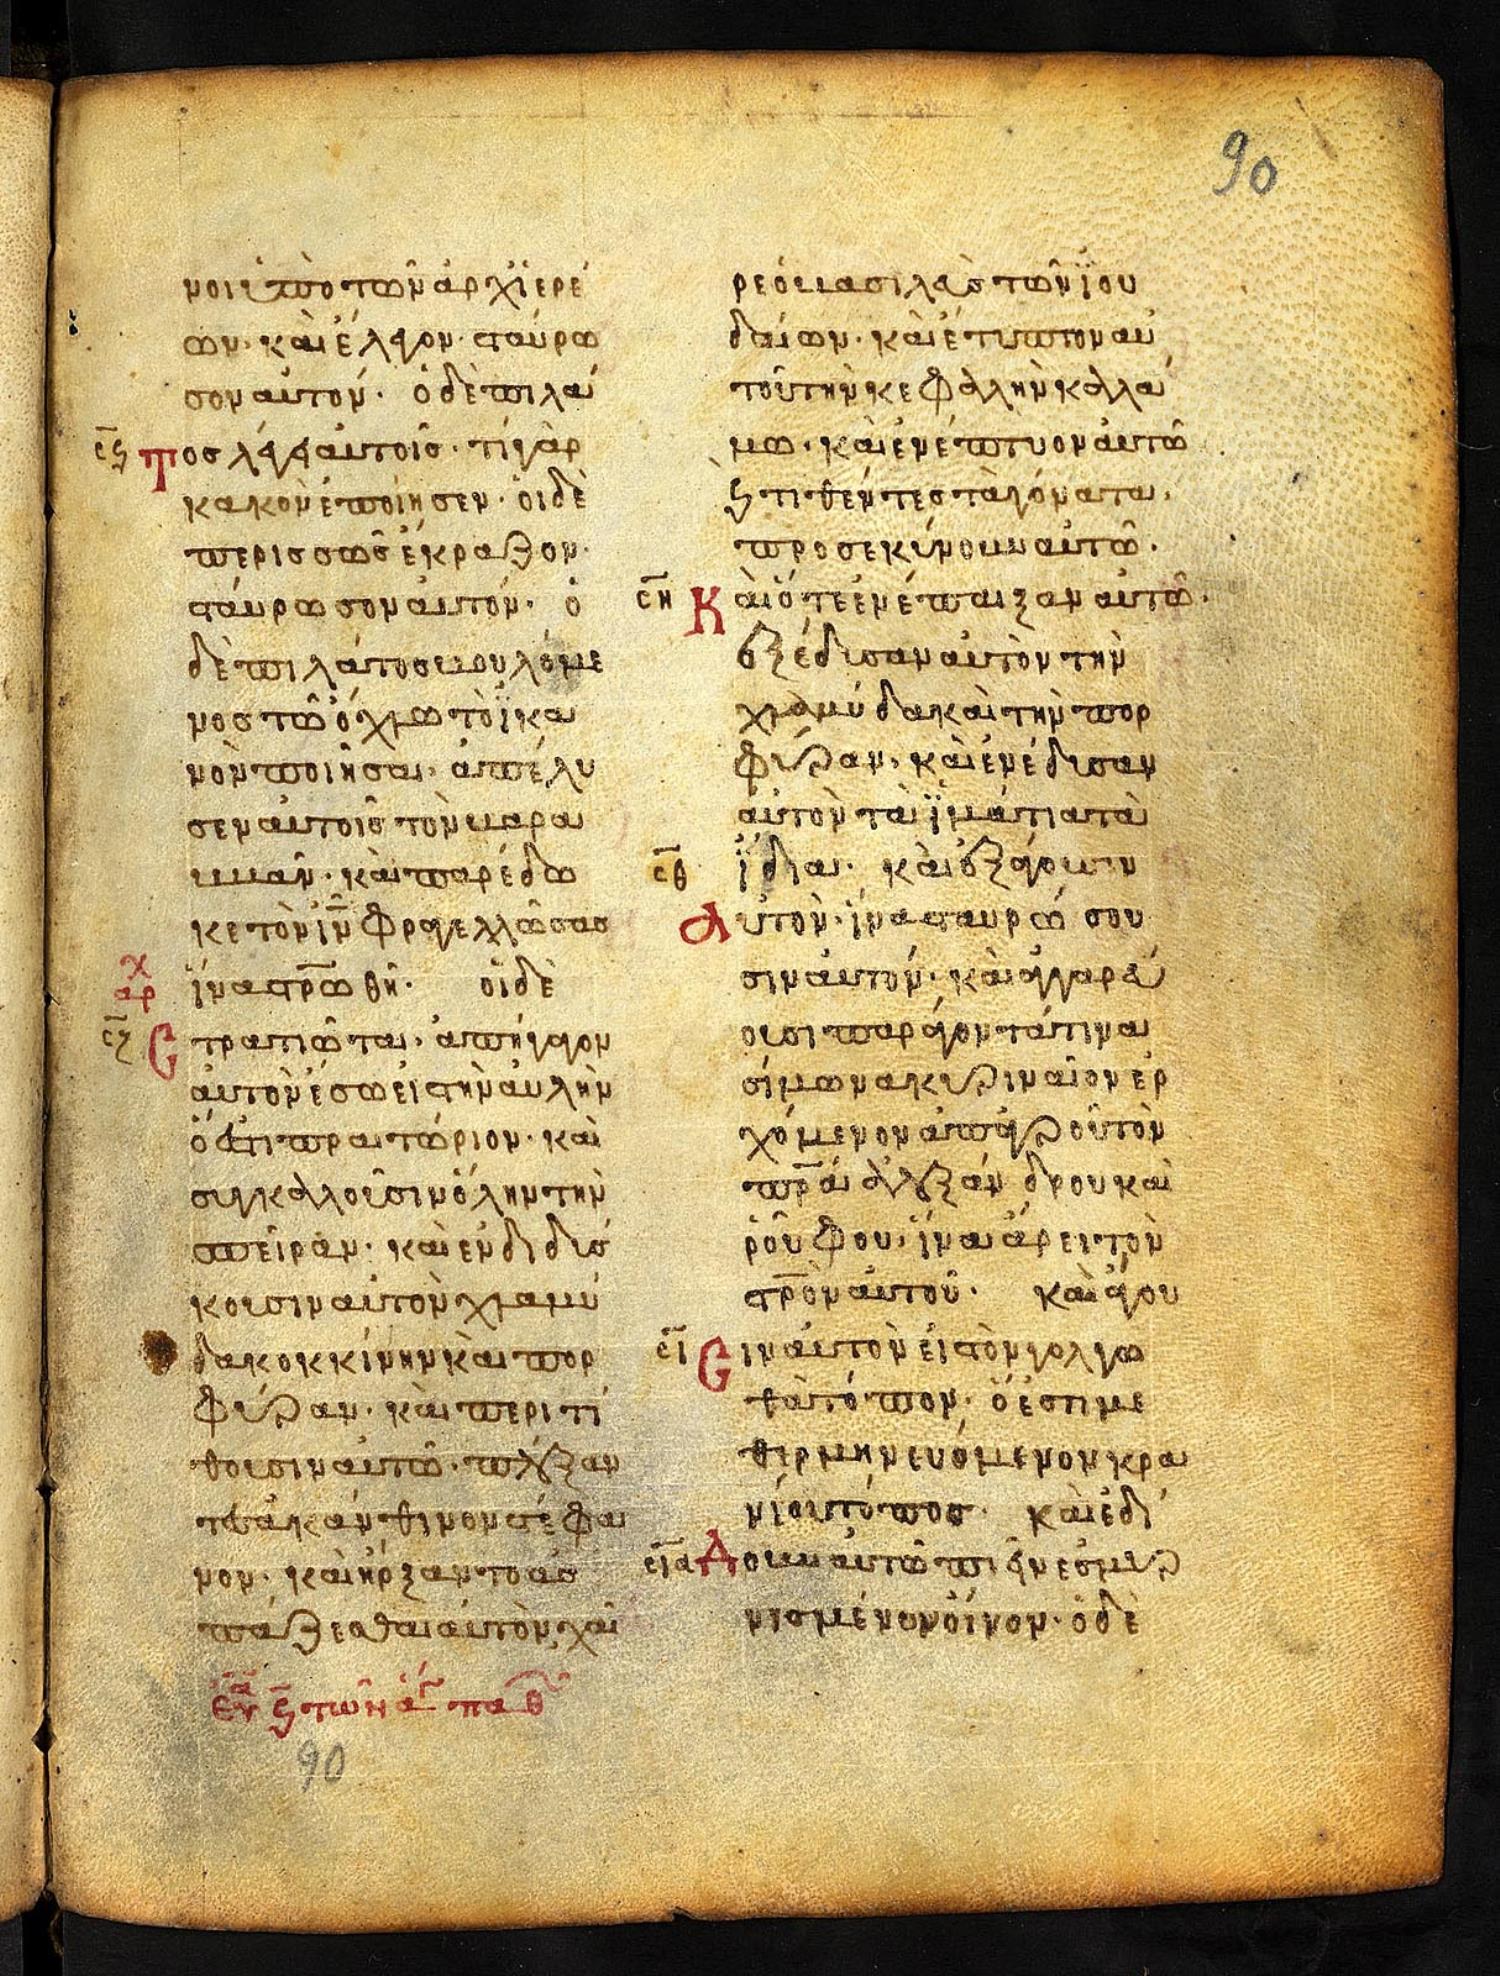 90
μοι ὑπὸ τῶν ἀρχϊερέ
ων· καὶ ἔλεγον· σταύρω
σον αὐτόν· ὁ δὲ πιλά
σϛ τος λέγει αὐτοῖς· τί γὰρ
κακὸν ἐποίησεν· οἱ δὲ
περισσῶς ἔκραζον·
σταύρωσον αὐτόν· ὁ
δὲ πιλάτος βουλόμε
νος τῶ ὄχλω τὸ ϊκα
νὸν ποιῆσαι· ἀπέλυ
σεν αὐτοῖς τὸν βαρα
ββᾶν· καὶ παρέδω
κε τὸν ιν φραγελλώσας
χ ϊνα στρωθῆ· οἱ δὲ
αρ
σζ στρατιῶται· ἀπήγαγον
αὐτὸν ἔσω εἰς τὴν αὐλὴν
ὅ ἐστι πραιτώριον· καὶ
συγκαλλοῦσιν ὅλην τὴν
σπεῖραν· καὶ ἐνδιδύσ
κουσιν αὐτὸν χλαμύ
δα κοκκίνην καὶ πορ
φύραν· καὶ περιτι
θουσιν αὐτῶ· πλέξαν
τες ἀκάνθινον στέφα
νον· καὶ ἤρξαντο ἀσ
πάζεσθαι αὐτὸν, χαῖ
ευα ϛ τῶν αγ παθ
90
ρε ὁ βασιλεὺς τῶν ϊου
δαίων· καὶ ἔτυπτον αὐ
τοῦ τὴν κεφαλλὴν καλλά
μω· καὶ ἐνέπτυον αὐτῶ
ϛ τιθέντες τὰ γόνατα·
προσεκύνουν αὐτῶ·
ση Καὶ ὅτε ἐνέπαιξαν αὐτῶ·
ἐξέδυσαν αὐτὸν τὴν
χλαμύδα καὶ τὴν πορ
φύραν· καὶ ἐνέδυσαν
αὐτὸν τὰ ϊμάτια τὰ
σθ ϊδια· καὶ ἐξάγουσιν
αὐτὸν· ϊνα σταυρώσου
σιν αὐτόν· καὶ ἀγγαρεύ
ουσι παράγοντά τινα
σίμωνα κυριναῖον ἐρ
χόμενον ἀπ' ἀγροῦ τὸν
πρα ἀλεξάνδρου καὶ
ρούφου· ϊνα ἄρει τὸν
στρον αὐτοῦ· καὶ ἄγου
σι σιν αὐτὸν εἰς τὸν γολγω
θὰ τόπον· ὅ ἐστι με
θιρμηνευόμενον κρα
νίου τόπος· καὶ ἐδί
σια δουν αὐτῶ πιεῖν ἐσμυρ
νισμένον οἶνον· ὁ δὲ